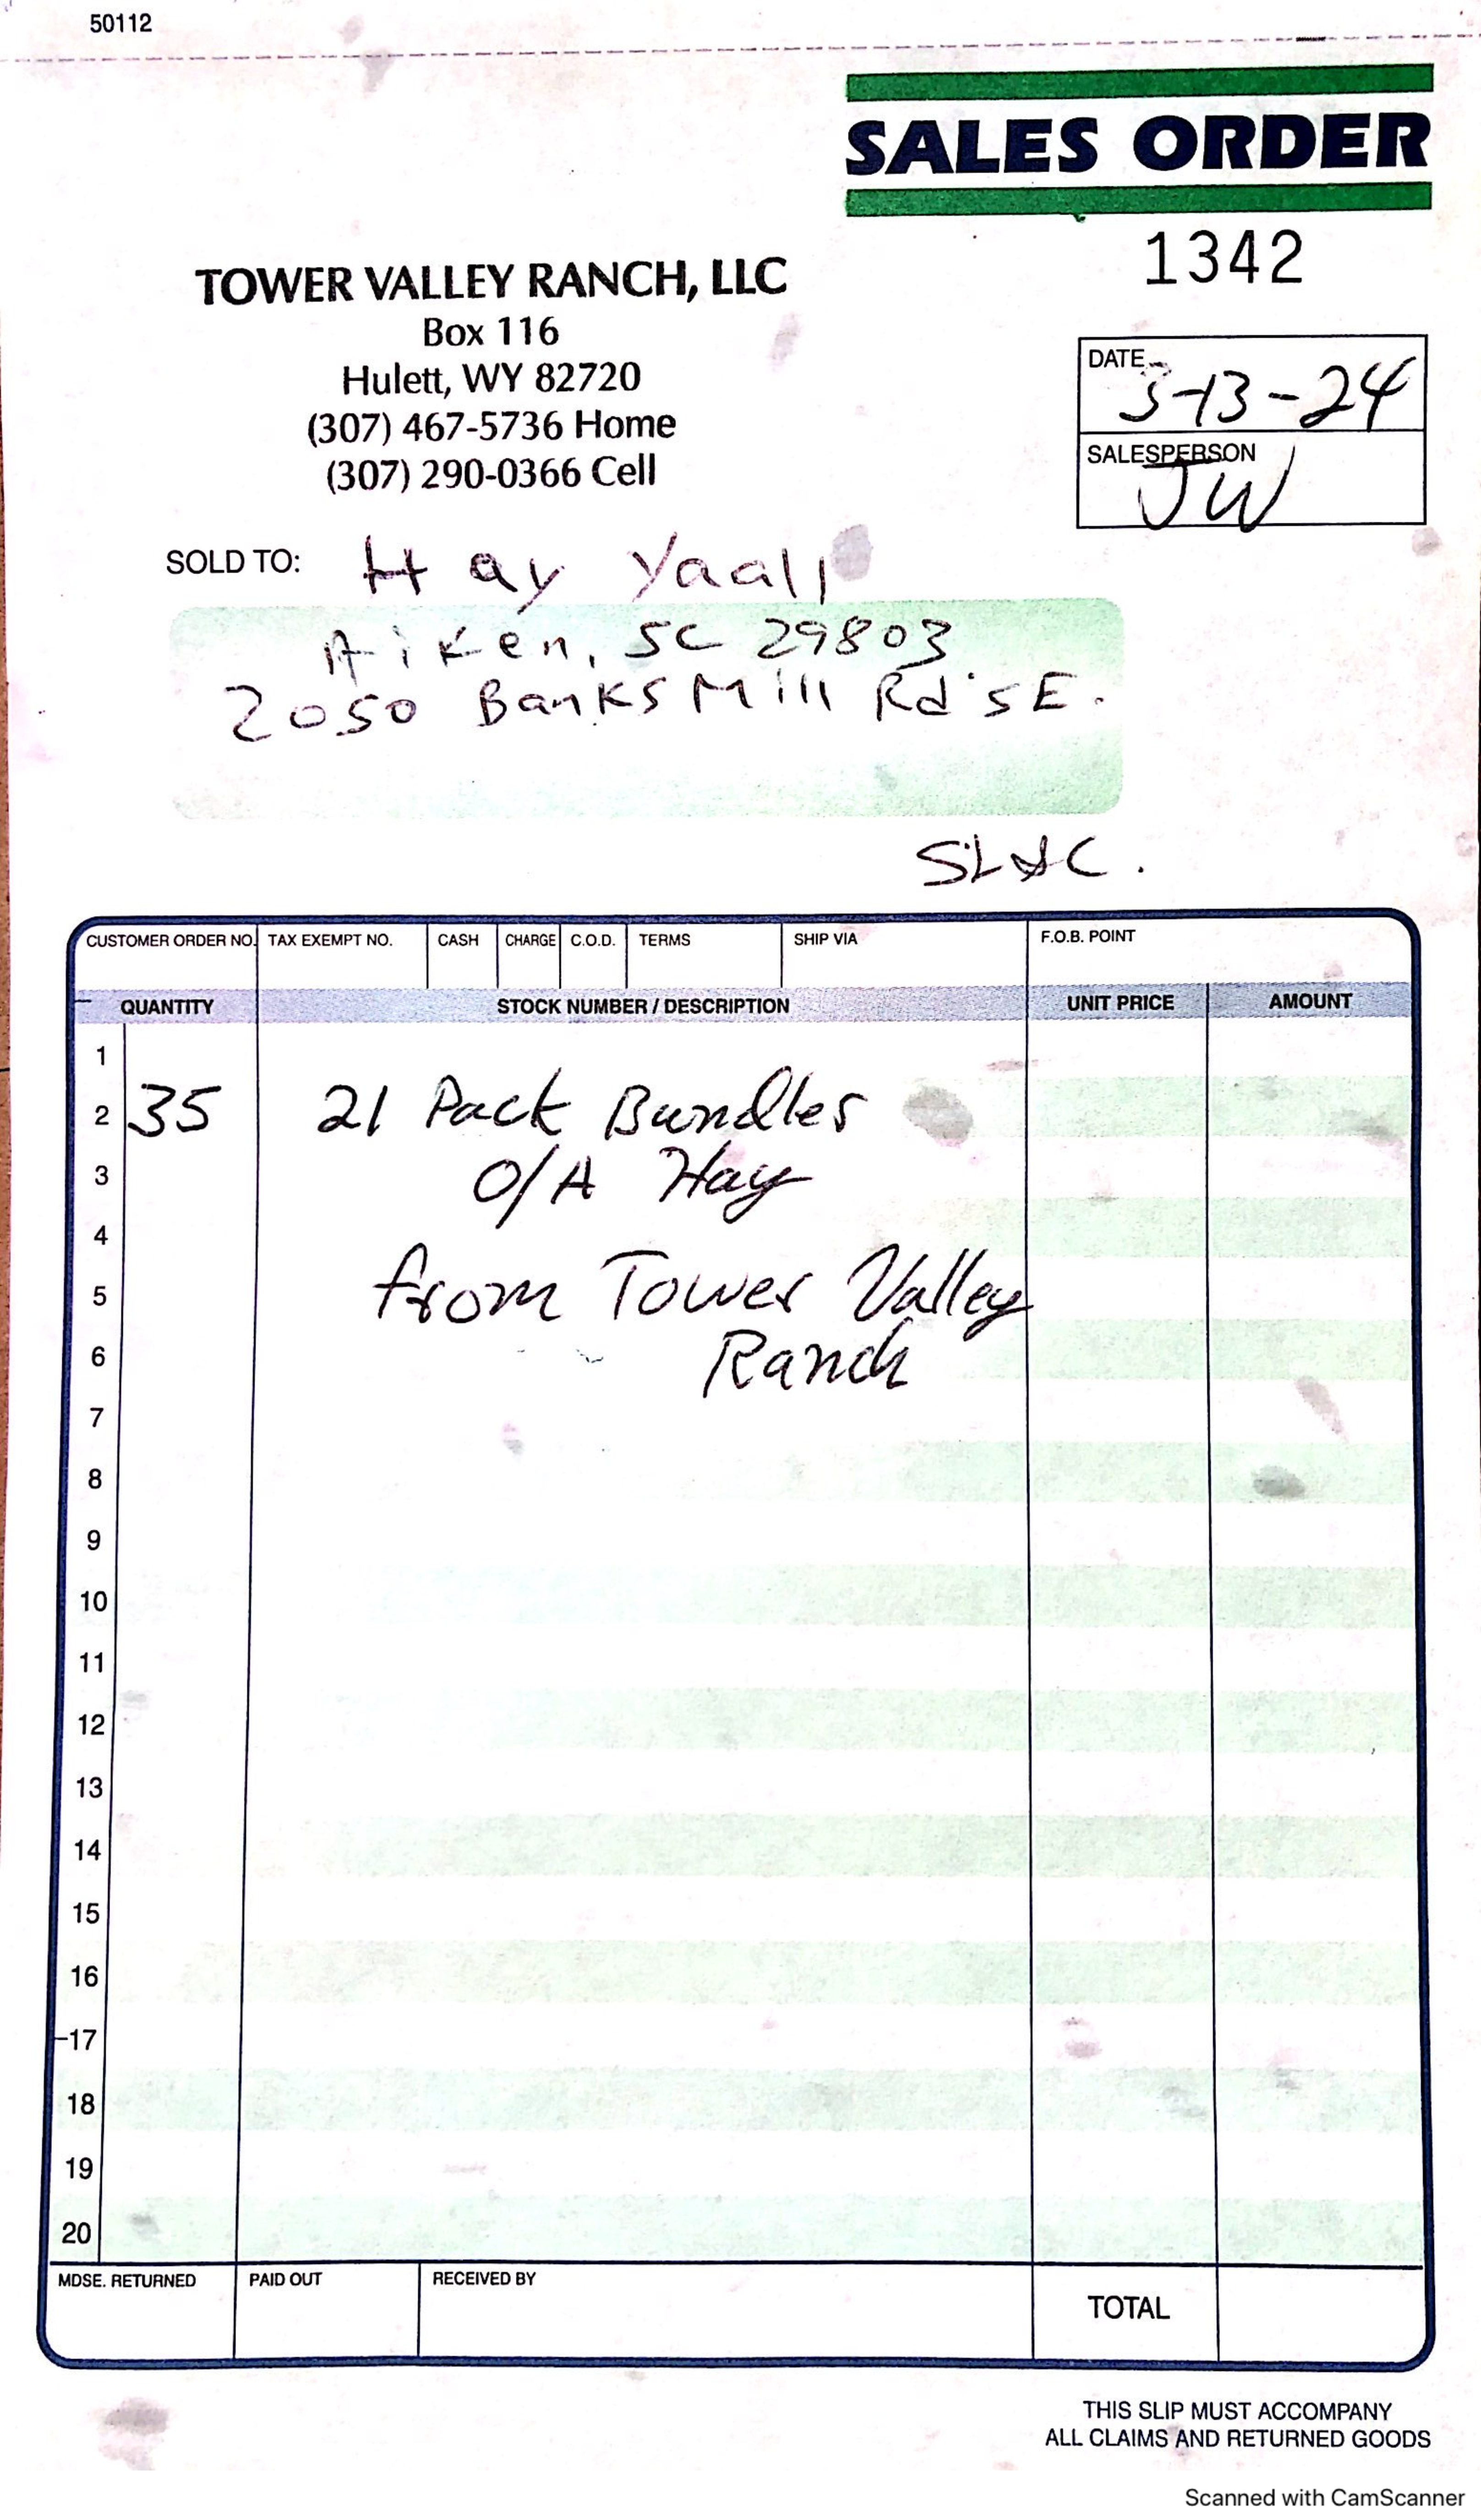 50112
SALES ORDER
1342
TOWER VALLEY RANCH, LLC
Box 116
Hulett, WY 82720
(307) 467-5736 Home
(307) 290-0366 Cell
DATE 3-13-24
SALESPERSON
JW
SOLD TO: Hay Yaall
Aiken, SC 29803
2050 Banks Mill Rd SE.
CUSTOMER ORDER NO. TAX EXEMPT NO. CASH CHARGE C.O.D. TERMS SHIP VIA F.O.B. POINT
QUANTITY STOCK NUMBER / DESCRIPTION UNIT PRICE AMOUNT
1
2 35 21 Pack Bundles
3 O/A Hay
4
5 from Tower Valley
6 Ranch
7
8
9
10
11
12
13
14
15
16
17
18
19
20
MDSE. RETURNED PAID OUT RECEIVED BY TOTAL
THIS SLIP MUST ACCOMPANY
ALL CLAIMS AND RETURNED GOODS
Scanned with CamScanner